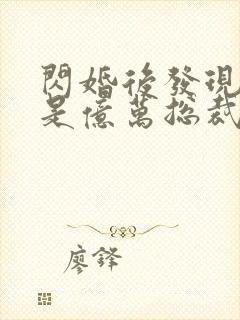 閃婚後發現
是億萬總裁
廖鋅